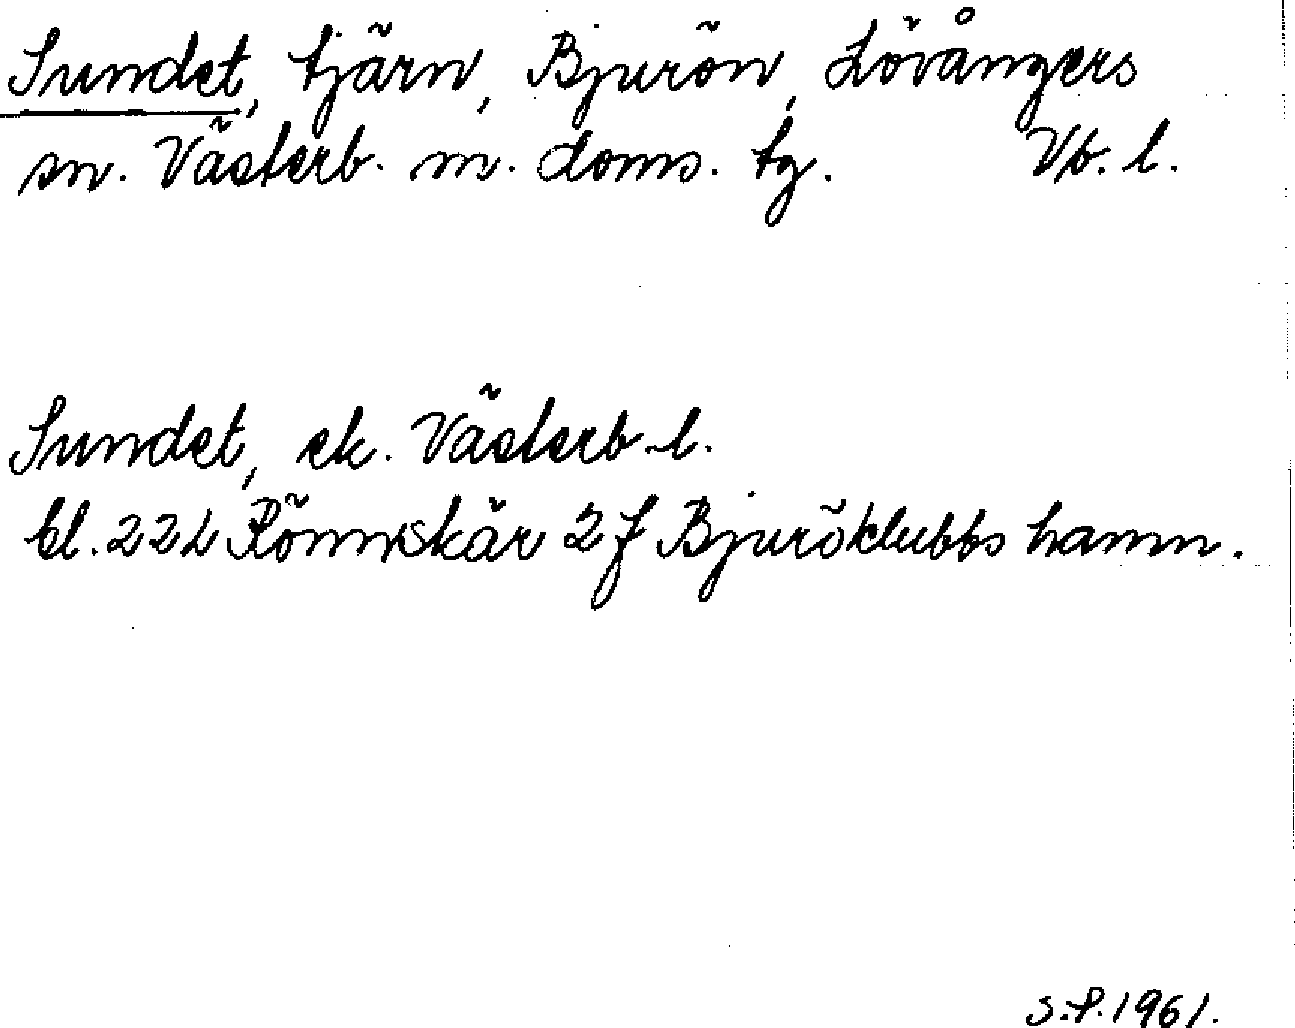 Sundet, tjärn, Bjurön, Lövångers
sn. Västerb. m. doms. tg. Vb. l.
Sundet, ek. Västerb. l.
bl. 22L Rönnskär 2f Bjuröklubbs hamn.
S.P. 1961.